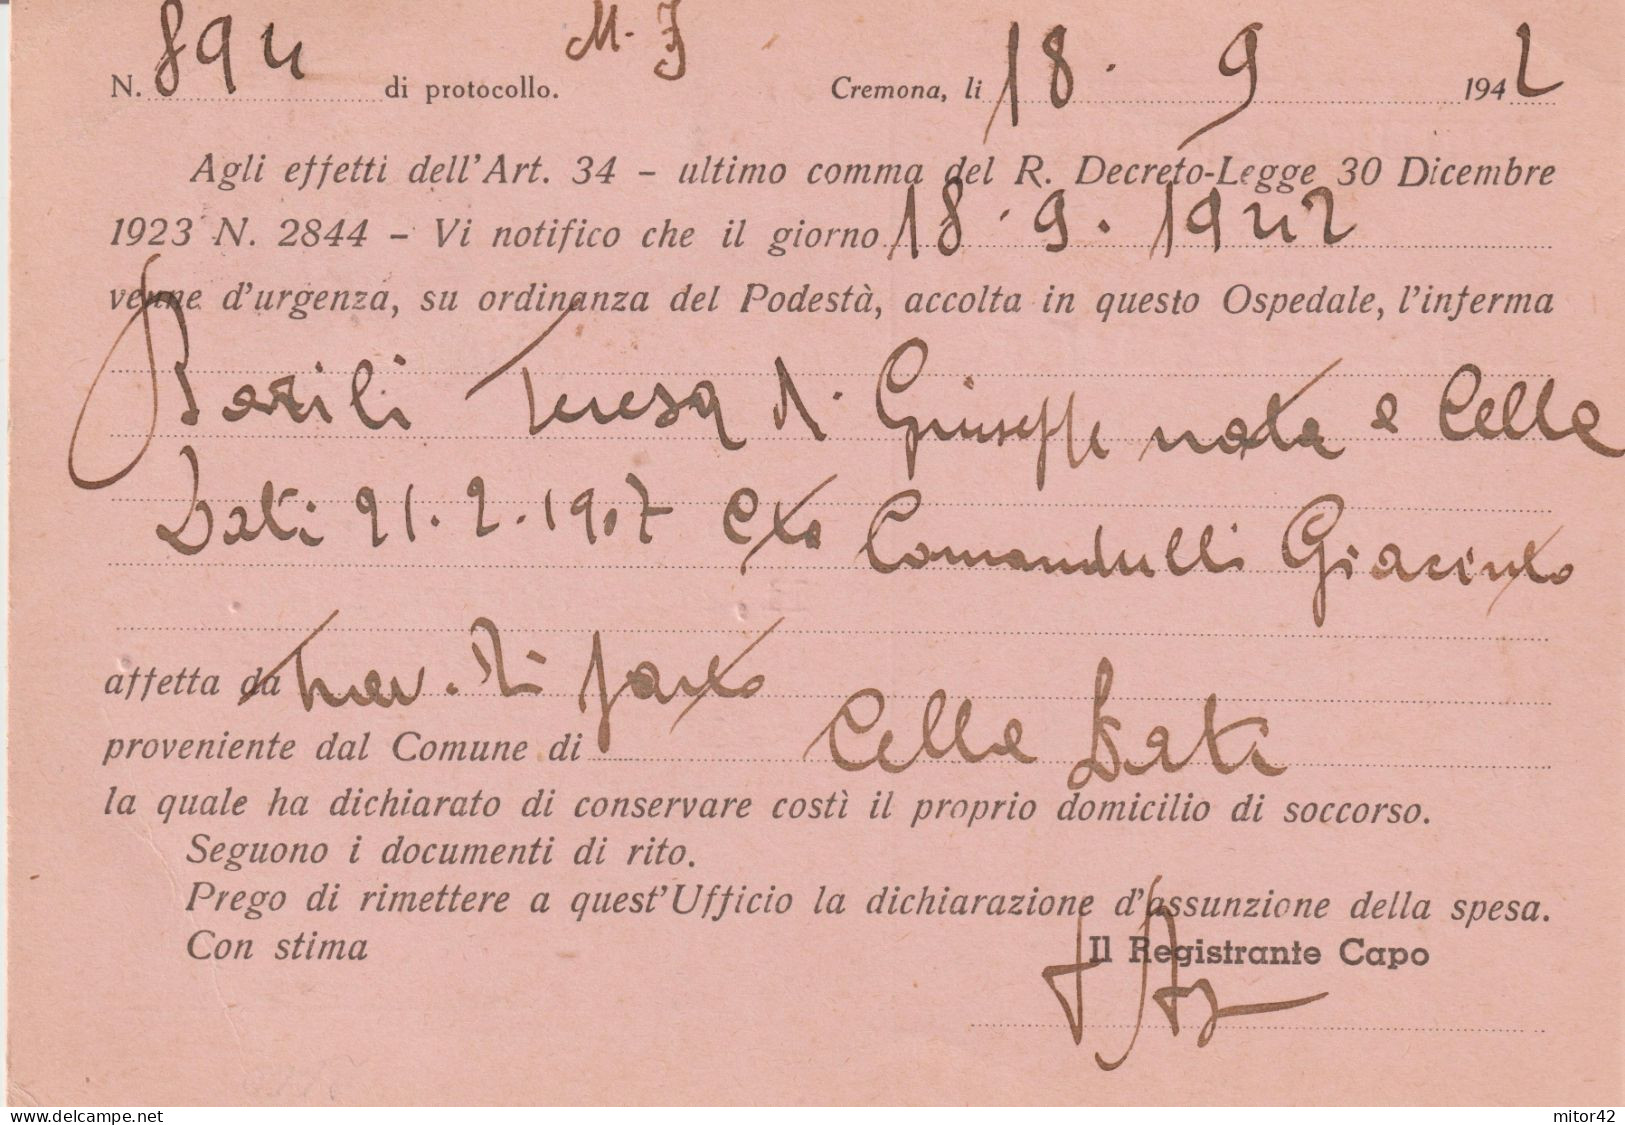 N. 894 di protocollo. M. I Cremona, li 18. 9 1942
Agli effetti dell'Art. 34 - ultimo comma del R. Decreto-Legge 30 Dicembre
1923 N. 2844 - Vi notifico che il giorno 18. 9. 1942
venne d'urgenza, su ordinanza del Podestà, accolta in questo Ospedale, l'inferma
Bazili Teresa di Giuseppe nata a Cella
Dati 21. 2. 1907 Comandulli Giacinto
affetta da trav. di parto
proveniente dal Comune di Cella Dati
la quale ha dichiarato di conservare costì il proprio domicilio di soccorso.
Seguono i documenti di rito.
Prego di rimettere a quest'Ufficio la dichiarazione d'assunzione della spesa.
Con stima
Il Registrante Capo
delcampe.net
mitor42